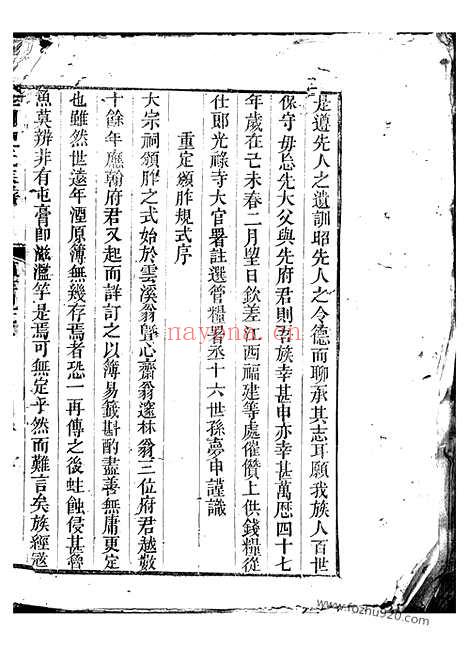 是遵先人之遺訓昭先人之令德而聊承其志耳願我族人百世
保守毋忘先大父與先府君則吾族幸甚申亦幸甚萬曆四十七
年歲在己未春二月望日欽差江西福建等處催儧上供錢糧從
仕郎光祿寺大官署註選管糧署丞十六世孫夢申謹識
重定頒胙規式序
大宗祠頒胙之式始於雲溪翁暨心齋翁邃林翁三位府君越數
十餘年應翰府君又起而詳訂之以簿易籤斟酌盡善無庸更定
也雖然世遠年湮原簿無幾存焉者恐一再傳之後蛀蝕侵甚魯
魚莫辨非有屯膏即滋濫竽是焉可無定乎然而難言矣族經
nayona.cn
www.fozhu920.com